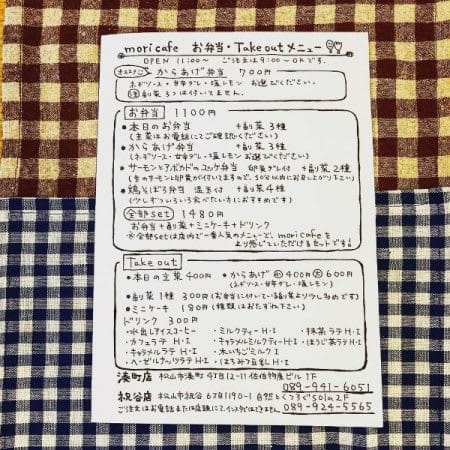 mori cafe お弁当・Take outメニュー
OPEN 11:00〜 ご注文は9:00〜OKです。
オススメ からあげ弁当 700円
ネギソース・甘辛ダレ・塩レモン お選びください。
注 副菜3つは付いてません。
お弁当 1100円
・本日のお弁当 +副菜3種
(主菜はお電話にてご確認ください)
・からあげ弁当 +副菜3種
(ネギソース・甘辛ダレ・塩レモンお選びください)
・サーモンとアボカドのユッケ弁当 卵黄ダレ付 +副菜2種
・鶏そぼろ弁当 温玉付 +副菜4種
(少しずついろいろ食べたい方におすすめです)
全部set 1480円
お弁当+副菜+ミニケーキ+ドリンク
※全部setは店内で一番人気のメニューで、mori cafeを
より感じていただけるセットです!
Take out
・本日の主菜 400円 ・からあげ 小400円 大600円
(ネギソース・甘辛ダレ・塩レモン)
・副菜1種 300円 (お弁当に付いている副菜より少し多めです)
・ミニケーキ 180円 (種類はおたずね下さい)
ドリンク 300円
・水出しアイスコーヒー ・ミルクティーH・I ・抹茶ラテH・I
・カフェラテ H・I ・キャラメルミルクティーH・I ・ほうじ茶ラテH・I
・キャラメルラテ H・I ・木いちごミルク I
・ヘーゼルナッツラテ H・I ・はちみつ豆乳H・I
湊町店 松山市湊町4丁目12-11 佐伯物産ビル1F
089-941-6051
祝谷店 松山市祝谷6丁目1190-1 自然とくつろぐsola 2F
ご注文はお電話または店頭にて インスタではできません。 089-924-5565